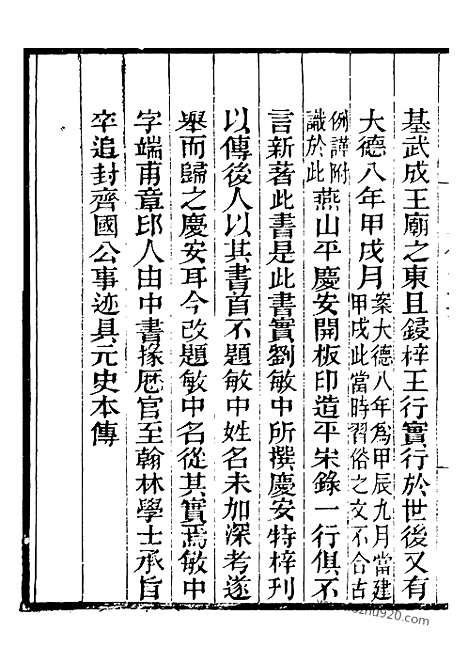 基武成王廟之東且鋟梓王行實行於世後又有
大德八年甲戌月案大德八年爲甲辰九月當建
甲戌此當時習俗之文不合古
例謹附
識於此燕山平慶安開板印造平宋錄一行俱不
言新著此書是此書實劉敏中所撰慶安特梓刊
以傳後人以其書首不題敏中姓名未加深考遂
舉而歸之慶安耳今改題敏中名從其實焉敏中
字端甫章邱人由中書掾歷官至翰林學士承旨
卒追封齊國公事迹具元史本傳